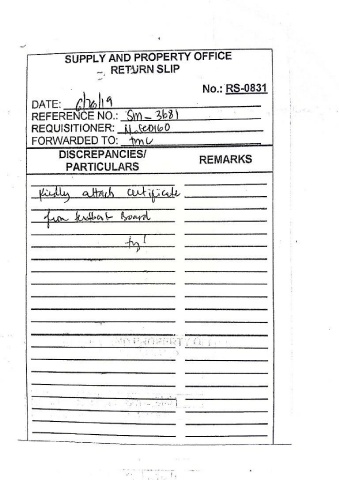 SUPPLY AND PROPERTY OFFICE
RETURN SLIP
No.: RS-0831
DATE: 6/26/19
REFERENCE NO.: Sm - 3681
REQUISITIONER:
FORWARDED TO:
DISCREPANCIES/ PARTICULARS
REMARKS
Kindly attach certificate
from Board
ty!